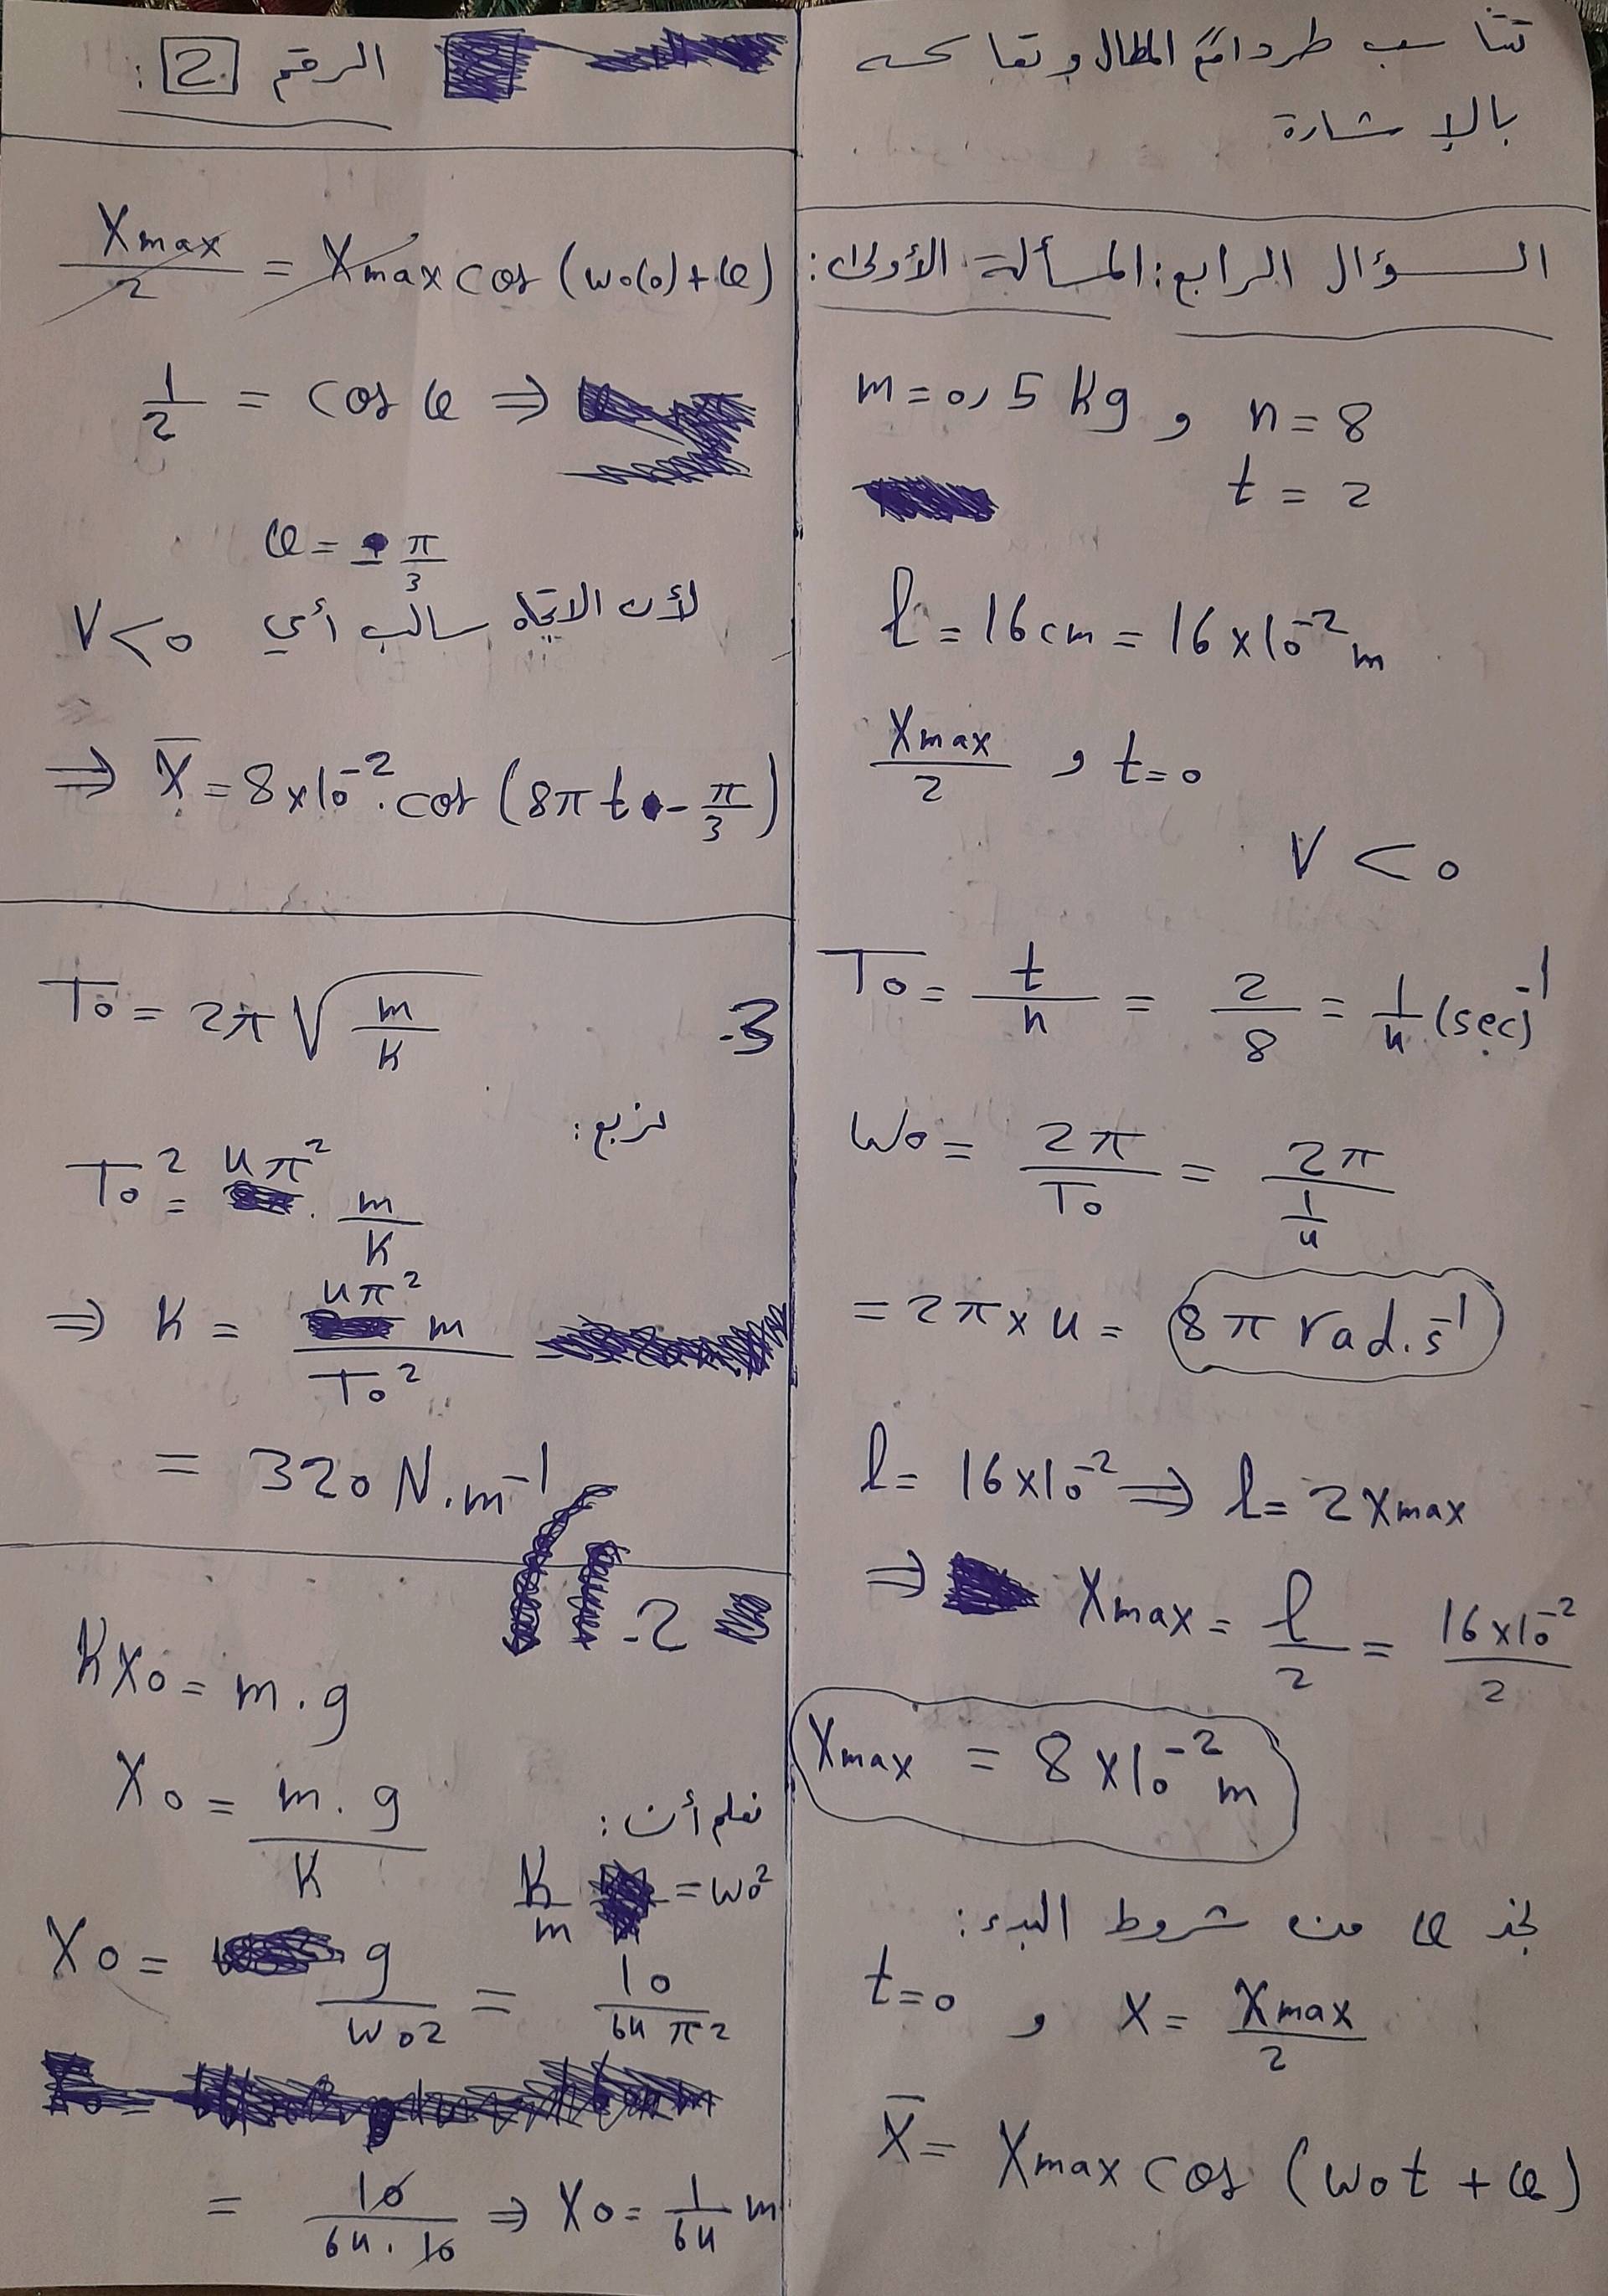 تتناسب طرداً مع المطال وتعاكسه
بالإشارة
السؤال الرابع: المسألة الأولى:
m = 0,5 Kg , n = 8
t = 2
l = 16 cm = 16 × 10⁻² m
Xmax/2 , t = 0
V < 0
T₀ = t/n = 2/8 = 1/4 (sec)⁻¹
ω₀ = 2π/T₀ = 2π/(1/4)
= 2π × 4 = 8π rad.s⁻¹
l = 16 × 10⁻² ⇒ l = 2 Xmax
⇒ Xmax = l/2 = 16 × 10⁻²/2
Xmax = 8 × 10⁻² m
نجد φ من شروط البدء:
t = 0 , X = Xmax/2
X̄ = Xmax cos (ω₀t + φ)
الرقم 2 :
Xmax/2 = Xmax cos (ω₀(0) + φ)
1/2 = cos φ ⇒
φ = - π/3
لأن الاتجاه سالب أي V < 0
⇒ X̄ = 8 × 10⁻² . cos (8πt - π/3)
3- T₀ = 2π √(m/K)
نربع:
T₀² = 4π² . m/K
⇒ K = 4π² m/T₀²
= 320 N.m⁻¹
2-
K X₀ = m . g
X₀ = m . g/K
نعلم أن:
K/m = ω₀²
X₀ = g/ω₀² = 10/64π²
= 10/64 . 10 ⇒ X₀ = 1/64 m